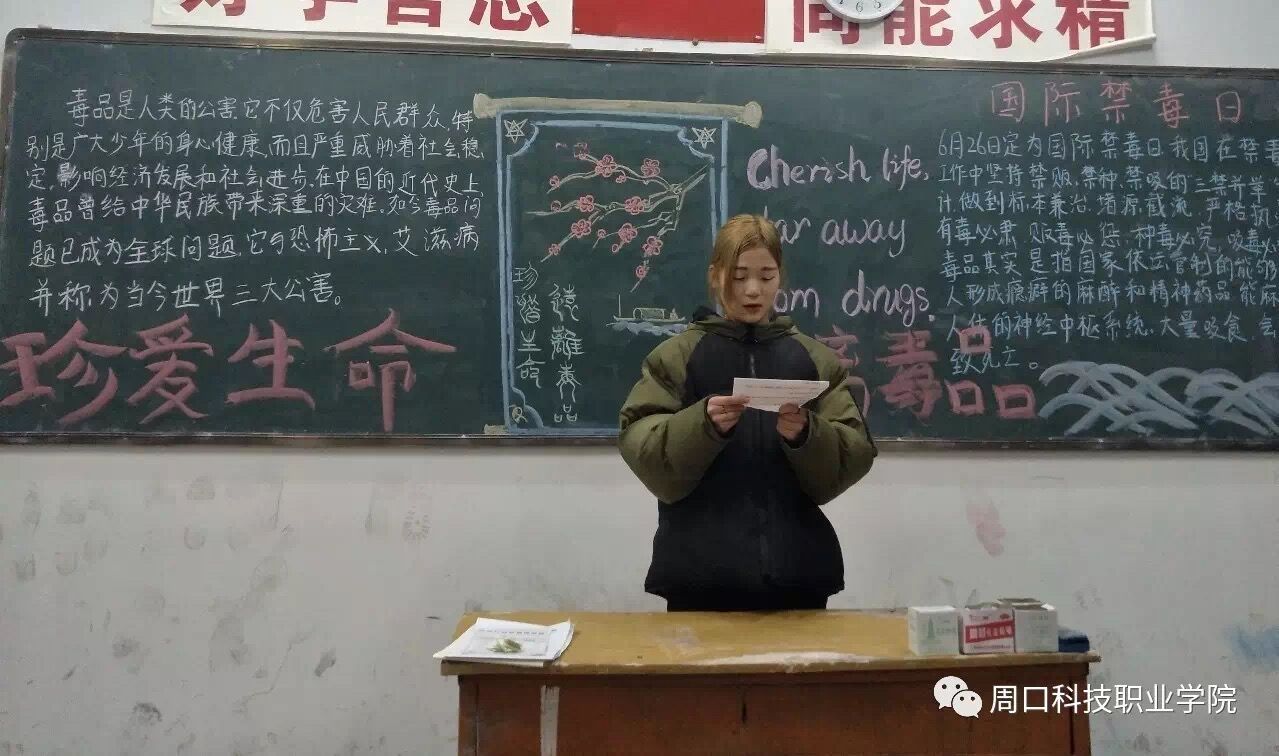 好学善思
尚能求精
毒品是人类的公害,它不仅危害人民群众,特
别是广大少年的身心健康,而且严重威胁着社会稳
定,影响经济发展和社会进步,在中国的近代史上
毒品曾给中华民族带来深重的灾难,如今毒品问
题已成为全球问题,它与恐怖主义,艾滋病
并称为当今世界三大公害。
珍爱生命
珍惜生命
远離毒品
Cherish life,
away
drugs.
国际禁毒日
6月26定为国际禁毒日我国在禁毒
工作中坚持禁贩,禁种,禁吸的三禁并举
计,做到标本兼治,堵源截流,严格执
有毒必肃,贩毒必惩,种毒必究,吸毒必
毒品其实是指国家依法管制的能够
人形成瘾癖的麻醉和精神药品能麻
人体的神经中枢系统,大量吸食,会
致死亡。
毒品
周口科技职业学院